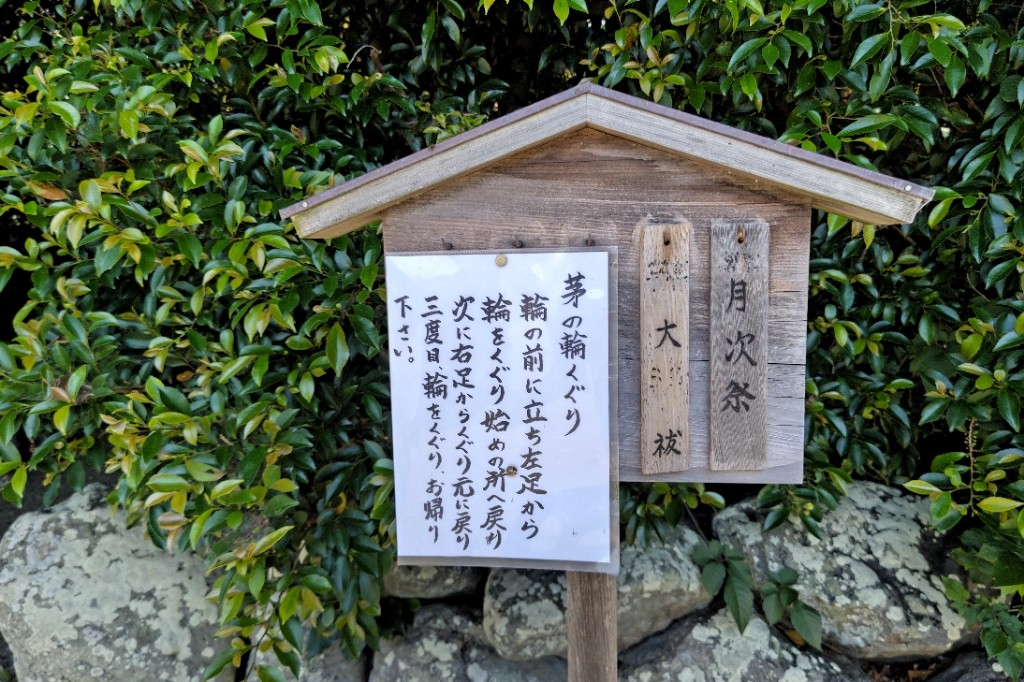 月次祭
大祓
茅の輪くぐり
輪の前に立ち左足から
輪をくぐり始めの所へ戻り
次に右足からくぐり元に戻り
三度目、輪をくぐり、お帰り
下さい。